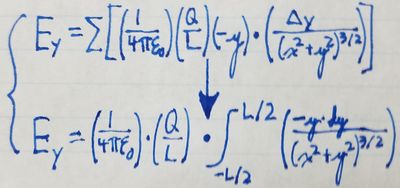 E_y = Σ[(1/4πε₀)(Q/L)(-y)·(Δy/(x²+y²)^3/2)]
E_y = (1/4πε₀)·(Q/L)·∫_{-L/2}^{L/2} (-y·dy/(x²+y²)^3/2)